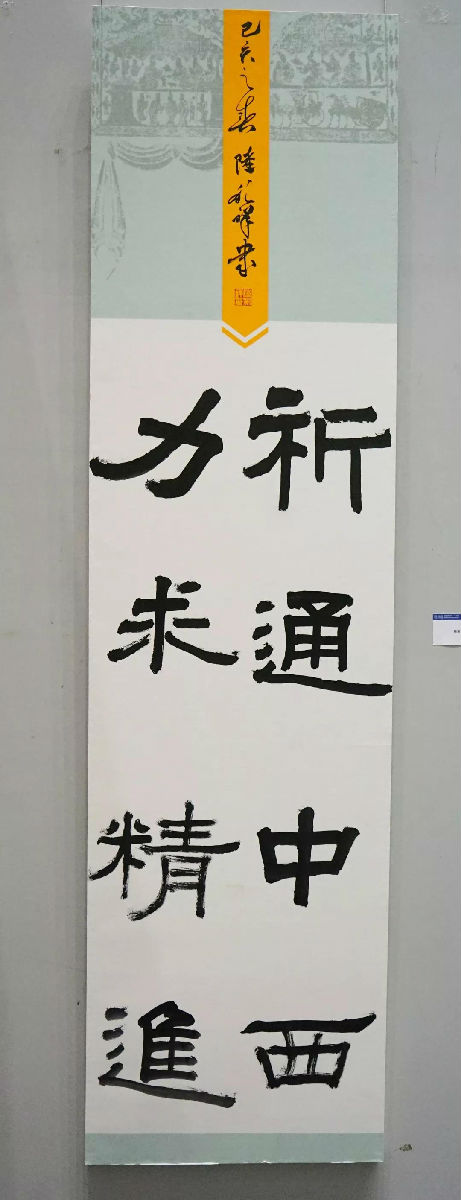 祈通中西
力求精進
己亥之春 陸
書